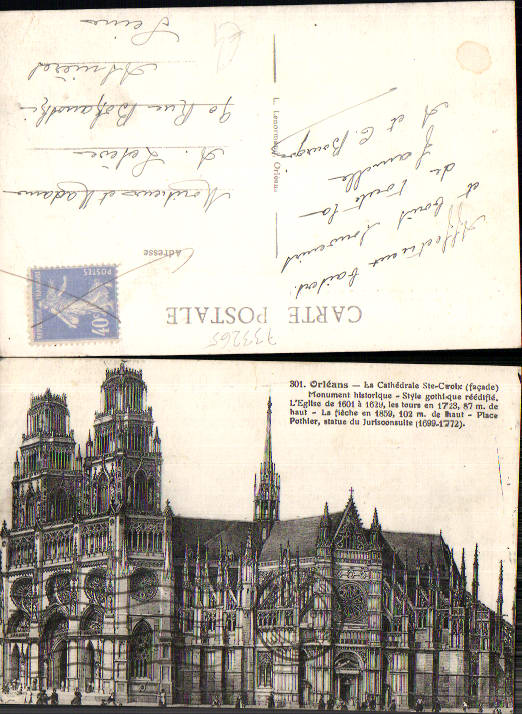 CARTE POSTALE
733265
Adresse
Monsieur et Madame
A. Lelièvre
70 Rue
Asnières
Seine
Affectueux baisers
et bons souvenirs
de toute la
famille
A et C. Bourgoin
L. Lenormand, Orléans
POSTES
40c
301. Orléans — La Cathédrale Ste-Croix (façade)
Monument historique - Style gothique réédifié.
L'Eglise de 1601 à 1629, les tours en 1723, 87 m. de
haut - La flèche en 1859, 102 m. de haut - Place
Pothier, statue du Jurisconsulte (1699-1772).